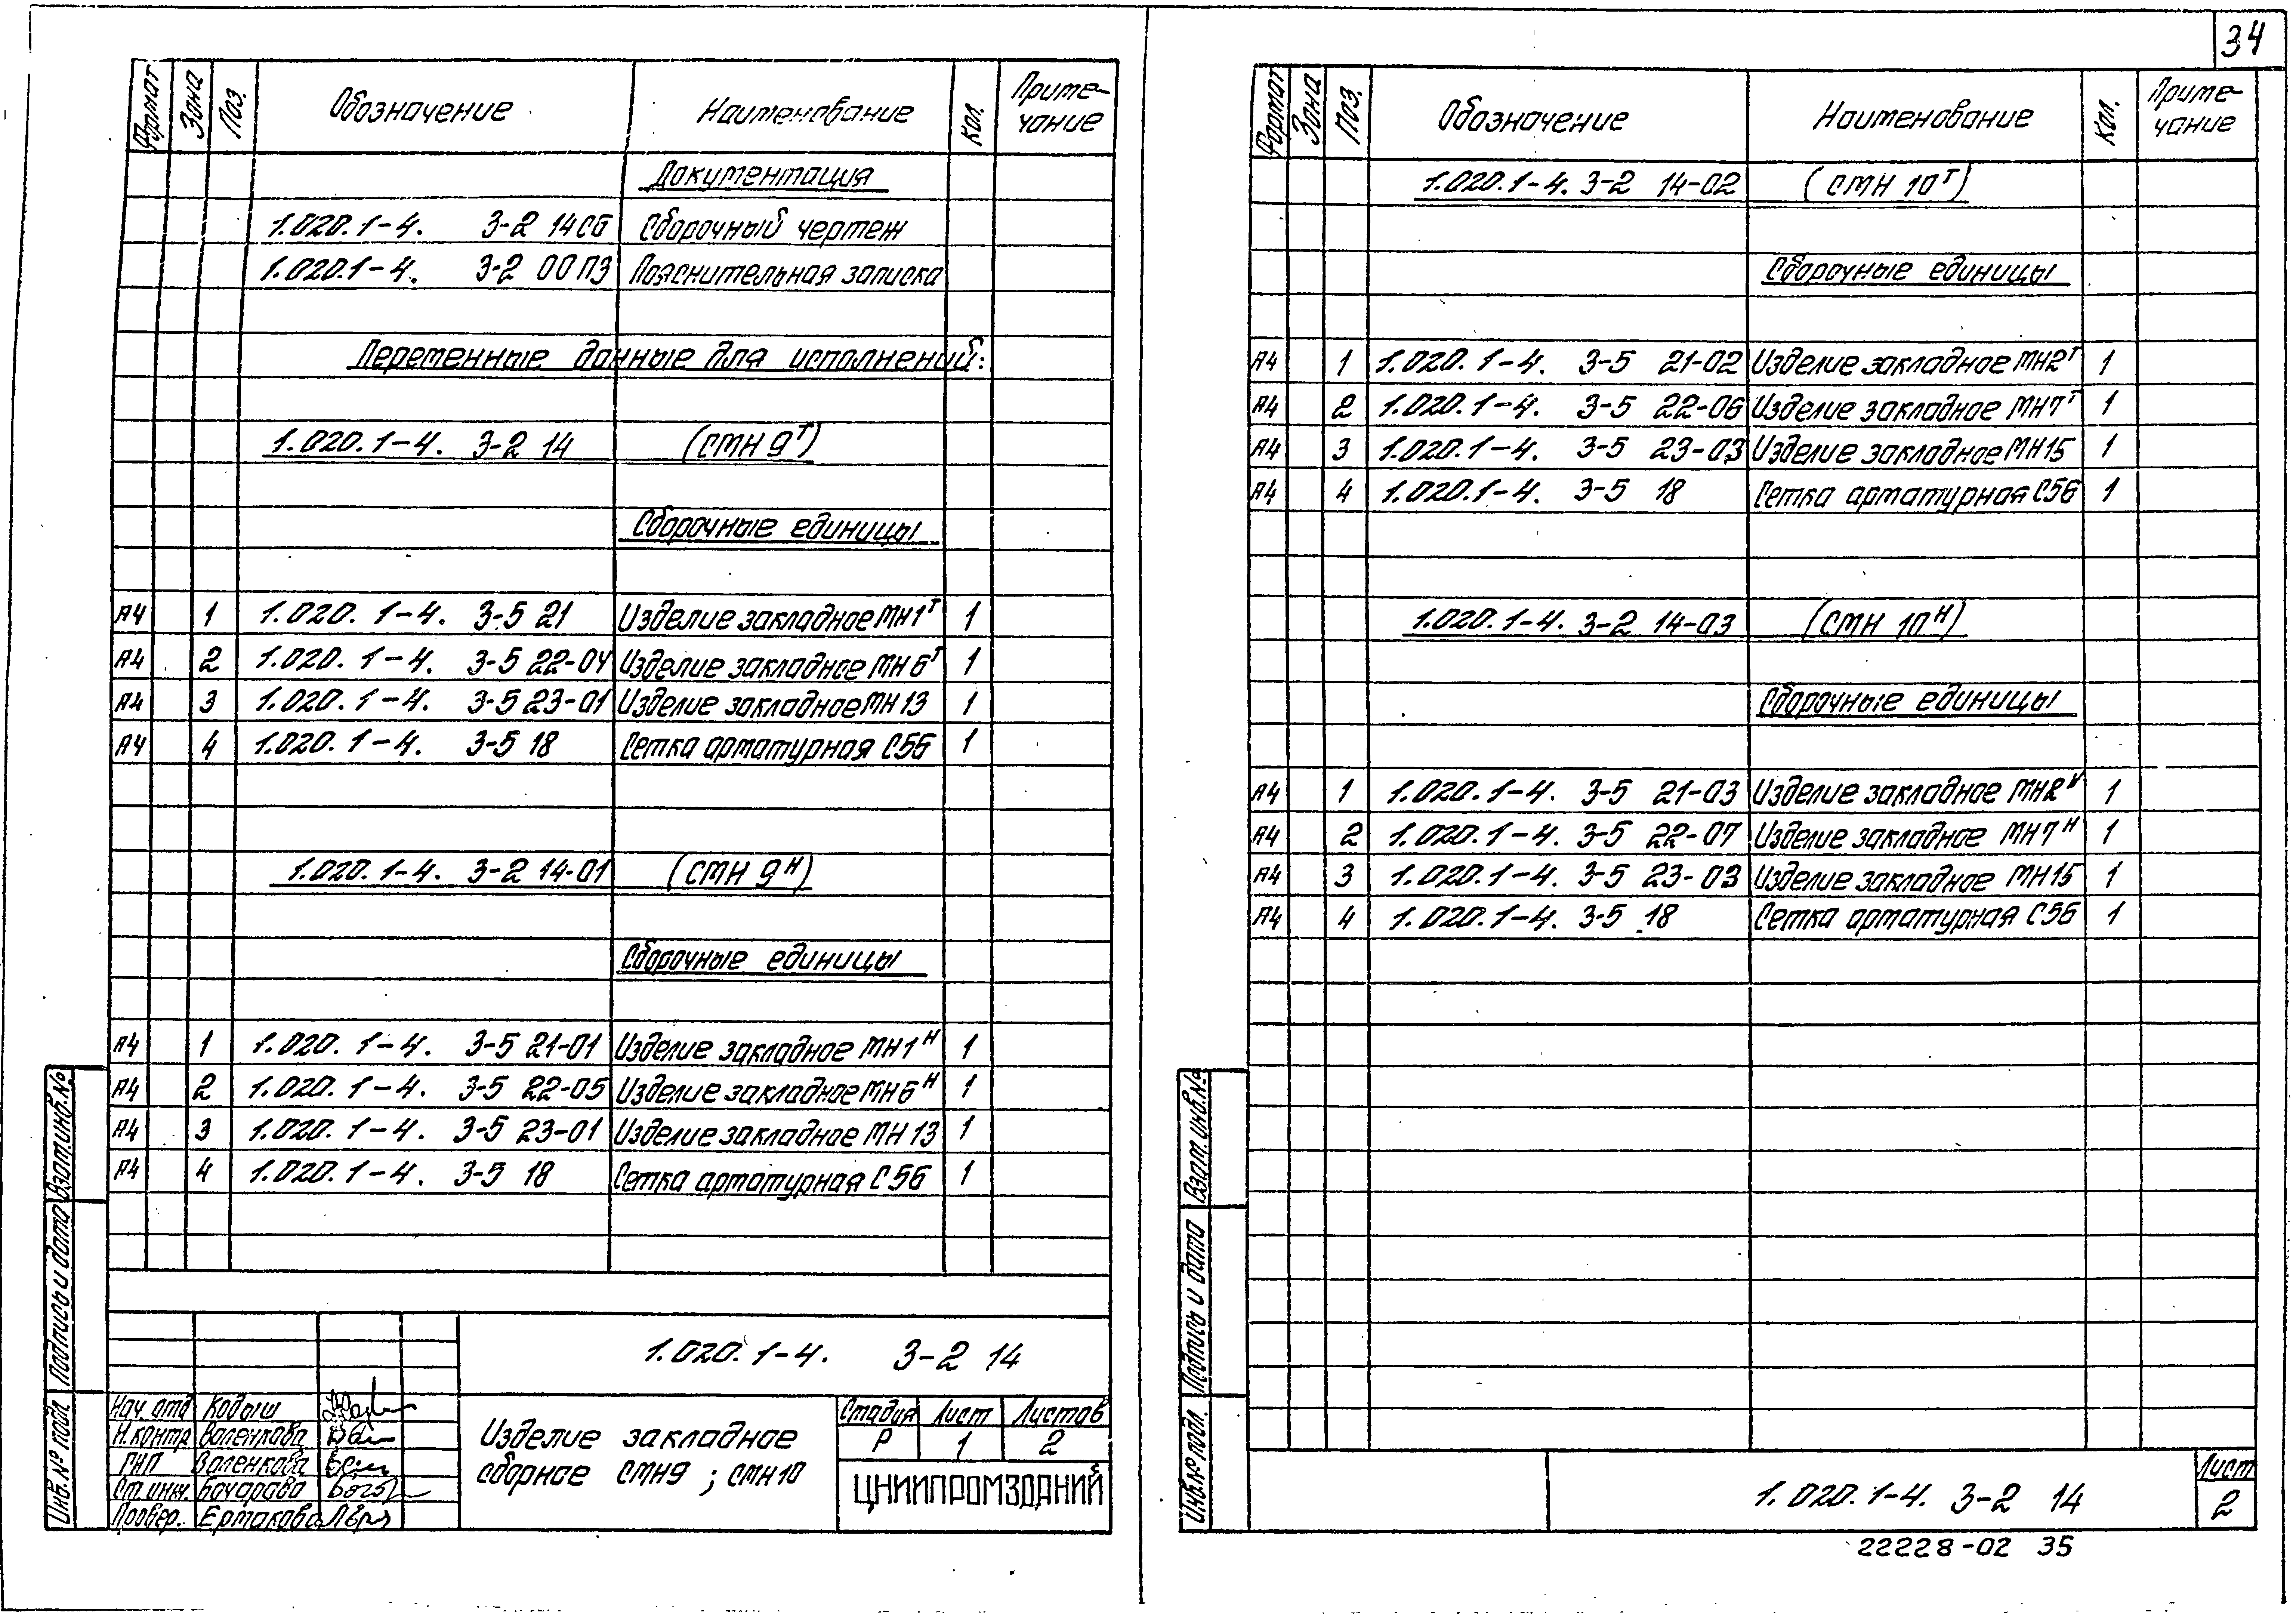 34
Формат Зона Поз. Обозначение Наименование Кол. Приме-чание
Документация
1.020.1-4. 3-2 14СБ Сборочный чертеж
1.020.1-4. 3-2 00 ПЗ Пояснительная записка
Переменные данные для исполнений:
1.020.1-4. 3-2 14 (СМН 9Т)
Сборочные единицы
А4 1 1.020.1-4. 3-5 21 Изделие закладное МН1Т 1
А4 2 1.020.1-4. 3-5 22-04 Изделие закладное МН6Т 1
А4 3 1.020.1-4. 3-5 23-01 Изделие закладное МН13 1
А4 4 1.020.1-4. 3-5 18 Сетка арматурная С56 1
1.020.1-4. 3-2 14-01 (СМН 9Н)
Сборочные единицы
А4 1 1.020.1-4. 3-5 21-01 Изделие закладное МН1Н 1
А4 2 1.020.1-4. 3-5 22-05 Изделие закладное МН6Н 1
А4 3 1.020.1-4. 3-5 23-01 Изделие закладное МН 13 1
А4 4 1.020.1-4. 3-5 18 Сетка арматурная С56 1
Инв.№ подл. Подпись и дата Взам.инв.№
1.020.1-4. 3-2 14
Нач. отд Кодыш
Н.контр Валенкова
ГИП Валенкова
Ст.инж. Бочарова
Провер. Ермакова
Изделие закладное
сборное СМН9; СМН10
Стадия Лист Листов
Р 1 2
ЦНИИПРОМЗДАНИЙ
Формат Зона Поз. Обозначение Наименование Кол. Приме-чание
1.020.1-4. 3-2 14-02 (СМН 10Т)
Сборочные единицы
А4 1 1.020.1-4. 3-5 21-02 Изделие закладное МН2Т 1
А4 2 1.020.1-4. 3-5 22-06 Изделие закладное МН7Т 1
А4 3 1.020.1-4. 3-5 23-03 Изделие закладное МН15 1
А4 4 1.020.1-4. 3-5 18 Сетка арматурная С56 1
1.020.1-4. 3-2 14-03 (СМН 10Н)
Сборочные единицы
А4 1 1.020.1-4. 3-5 21-03 Изделие закладное МН2Н 1
А4 2 1.020.1-4. 3-5 22-07 Изделие закладное МН7Н 1
А4 3 1.020.1-4. 3-5 23-03 Изделие закладное МН15 1
А4 4 1.020.1-4. 3-5 18 Сетка арматурная С56 1
Инв.№ подл. Подпись и дата Взам.инв.№
1.020.1-4. 3-2 14
Лист
2
22228-02 35